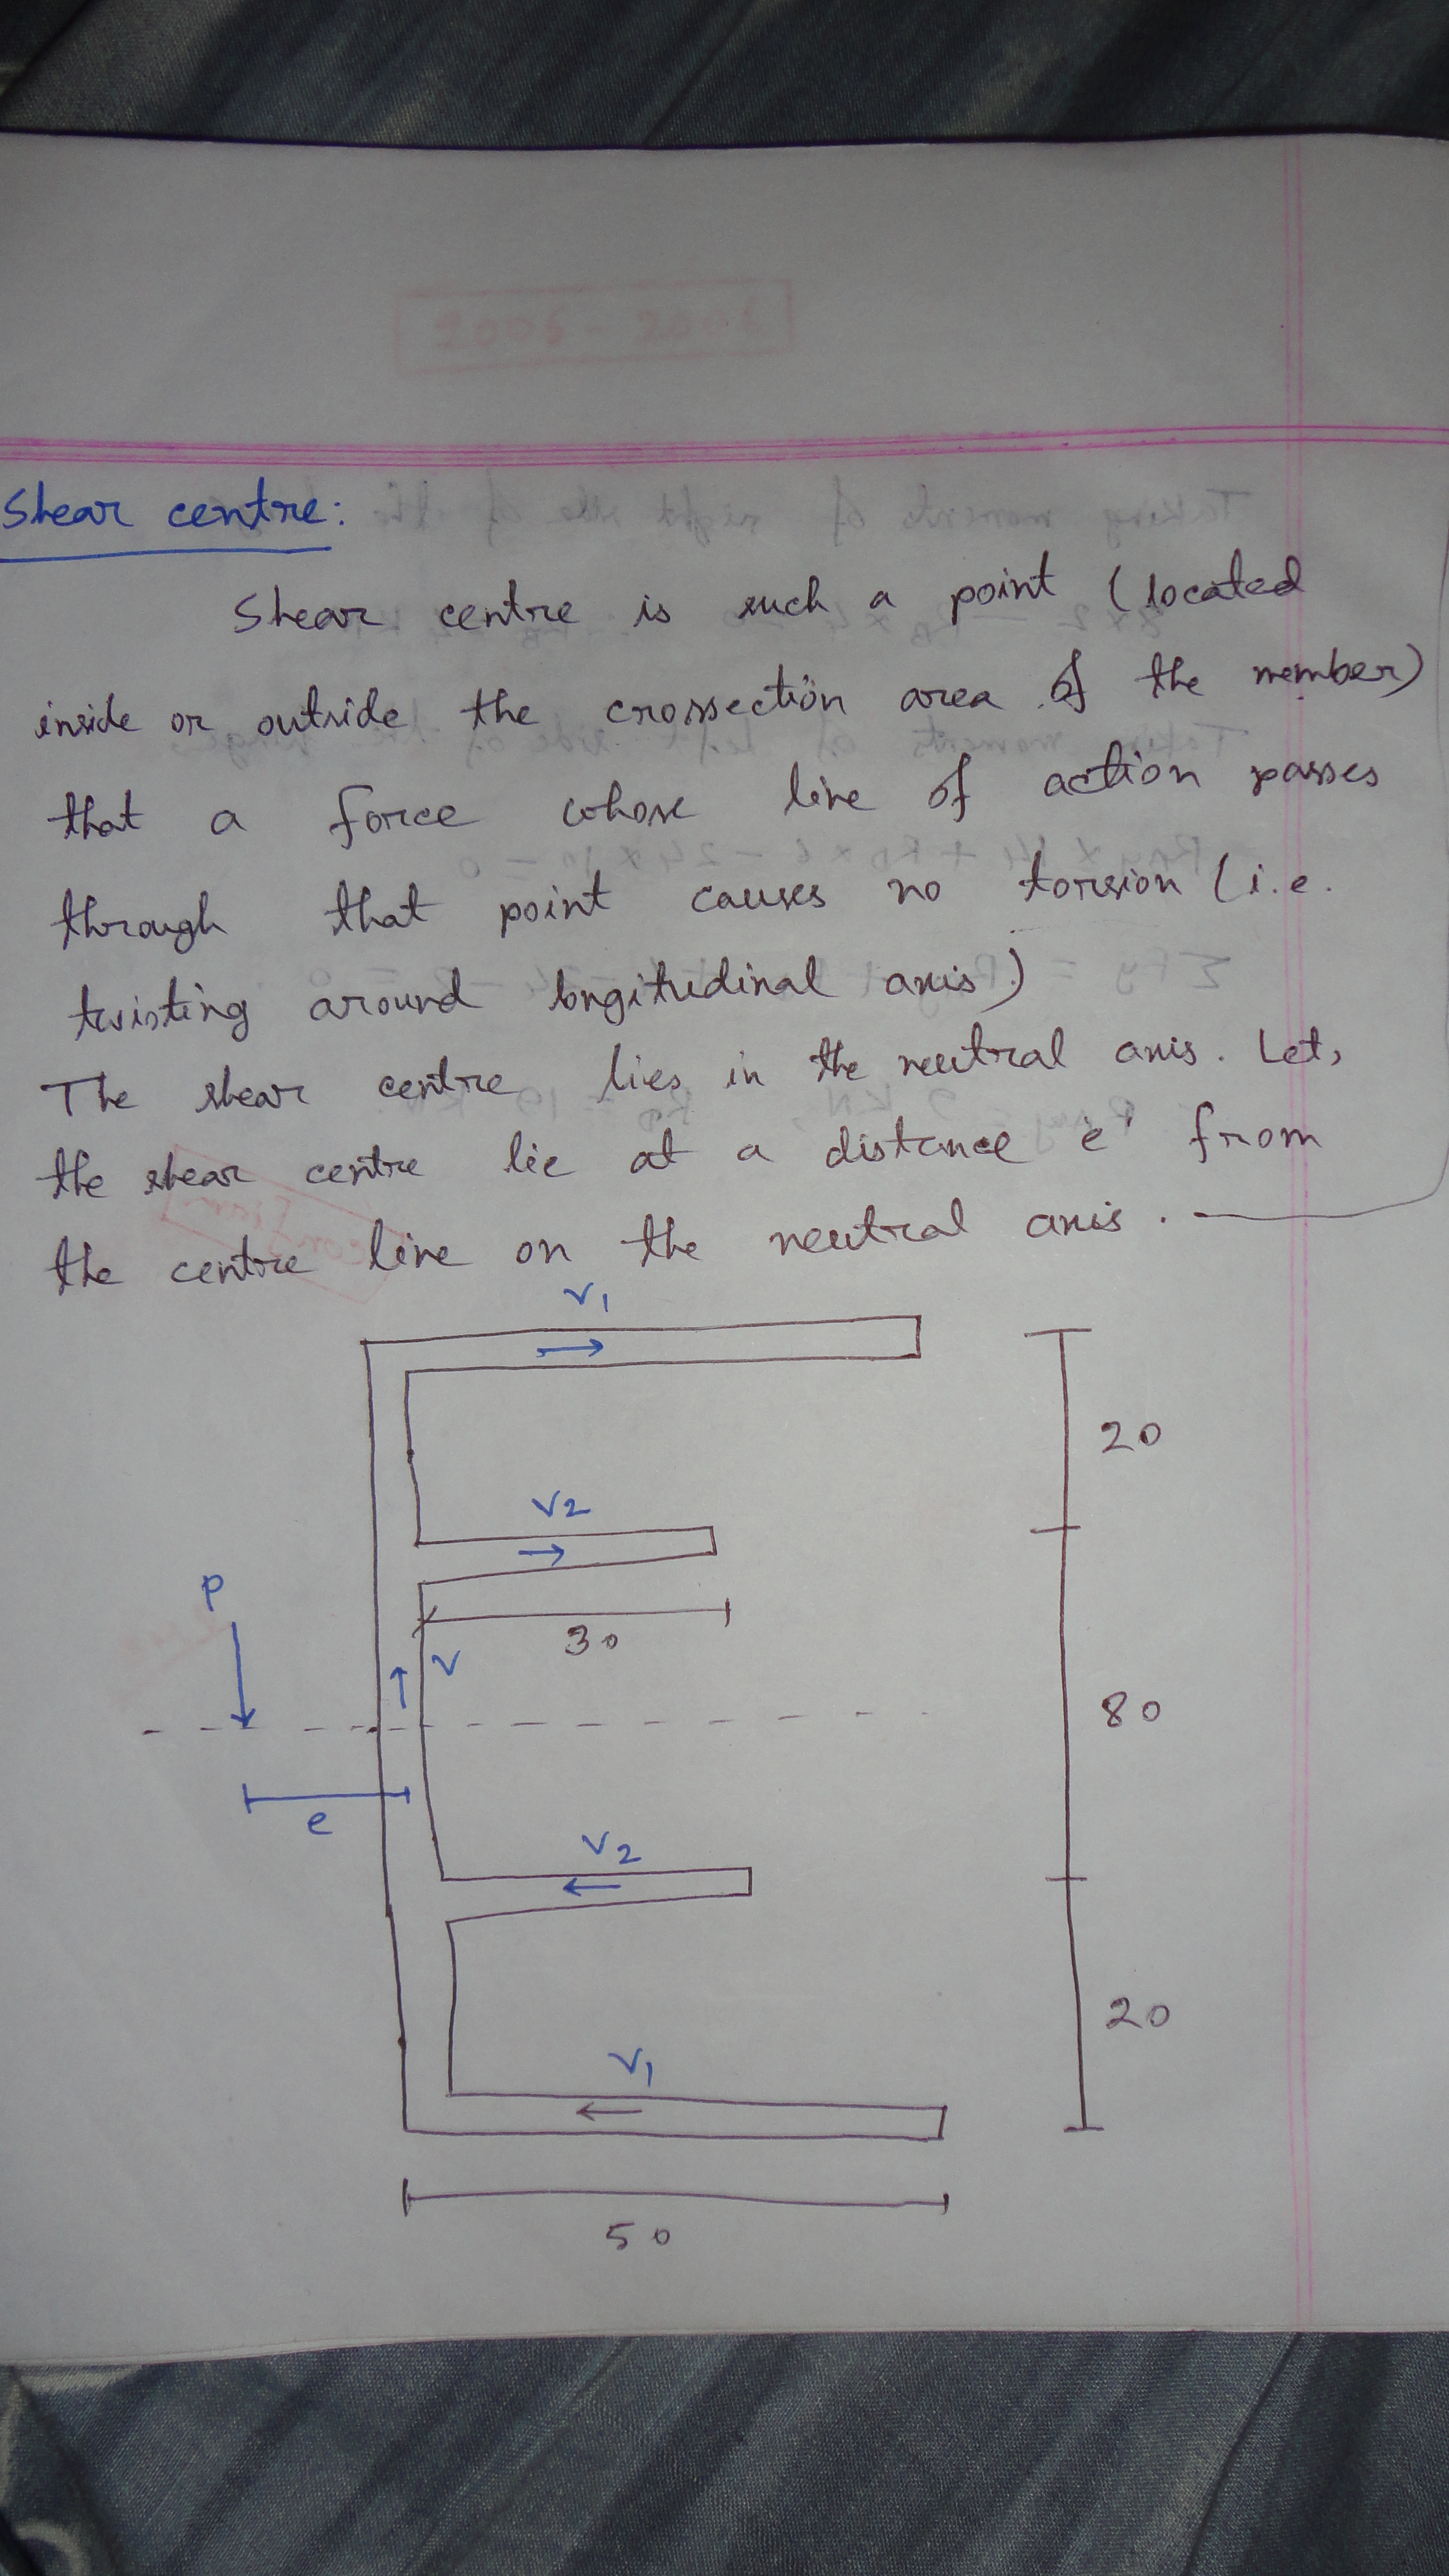 Shear centre:
Shear centre is such a point (located
inside or outside the crossection area of the member)
that a force whose line of action passes
through that point causes no torsion (i.e.
twisting around longitudinal axis)
The shear centre lies in the neutral axis. Let,
the shear centre lie at a distance e' from
the centre line on the neutral axis.
V1
20
V2
P
30
V
80
e
V2
20
V1
50